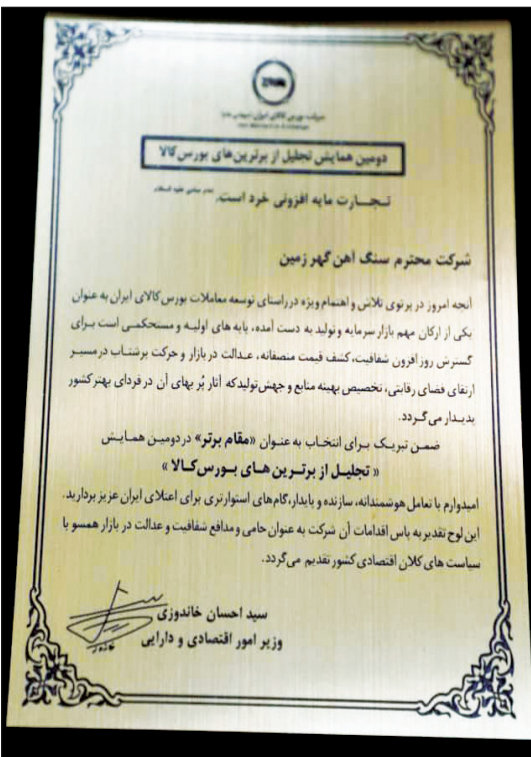 شرکت بورس کالای ایران (سهامی عام)
دومین همایش تجلیل از برترین‌های بورس کالا
تجارت مایه افزونی خرد است. امام صادق علیه السلام
شرکت محترم سنگ آهن گهر زمین
آنچه امروز در پرتوی تلاش و اهتمام ویژه در راستای توسعه معاملات بورس کالای ایران به عنوان
یکی از ارکان مهم بازار سرمایه و تولید به دست آمده، پایه های اولیه و مستحکمی است برای
گسترش روزافزون شفافیت، کشف قیمت منصفانه، عدالت در بازار و حرکت پرشتاب در مسیر
ارتقای فضای رقابتی، تخصیص بهینه منابع و جهش تولید که آثار پُر بهای آن در فردای بهتر کشور
پدیدار می گردد.
ضمن تبریک برای انتخاب به عنوان «مقام برتر» در دومین همایش
« تجلیل از برترین های بورس کالا »
امیدوارم با تعامل هوشمندانه، سازنده و پایدار، گام های استوارتری برای اعتلای ایران عزیز بردارید.
این لوح تقدیر به پاس اقدامات آن شرکت به عنوان حامی و مدافع شفافیت و عدالت در بازار همسو با
سیاست های کلان اقتصادی کشور تقدیم می گردد.
سید احسان خاندوزی
وزیر امور اقتصادی و دارایی